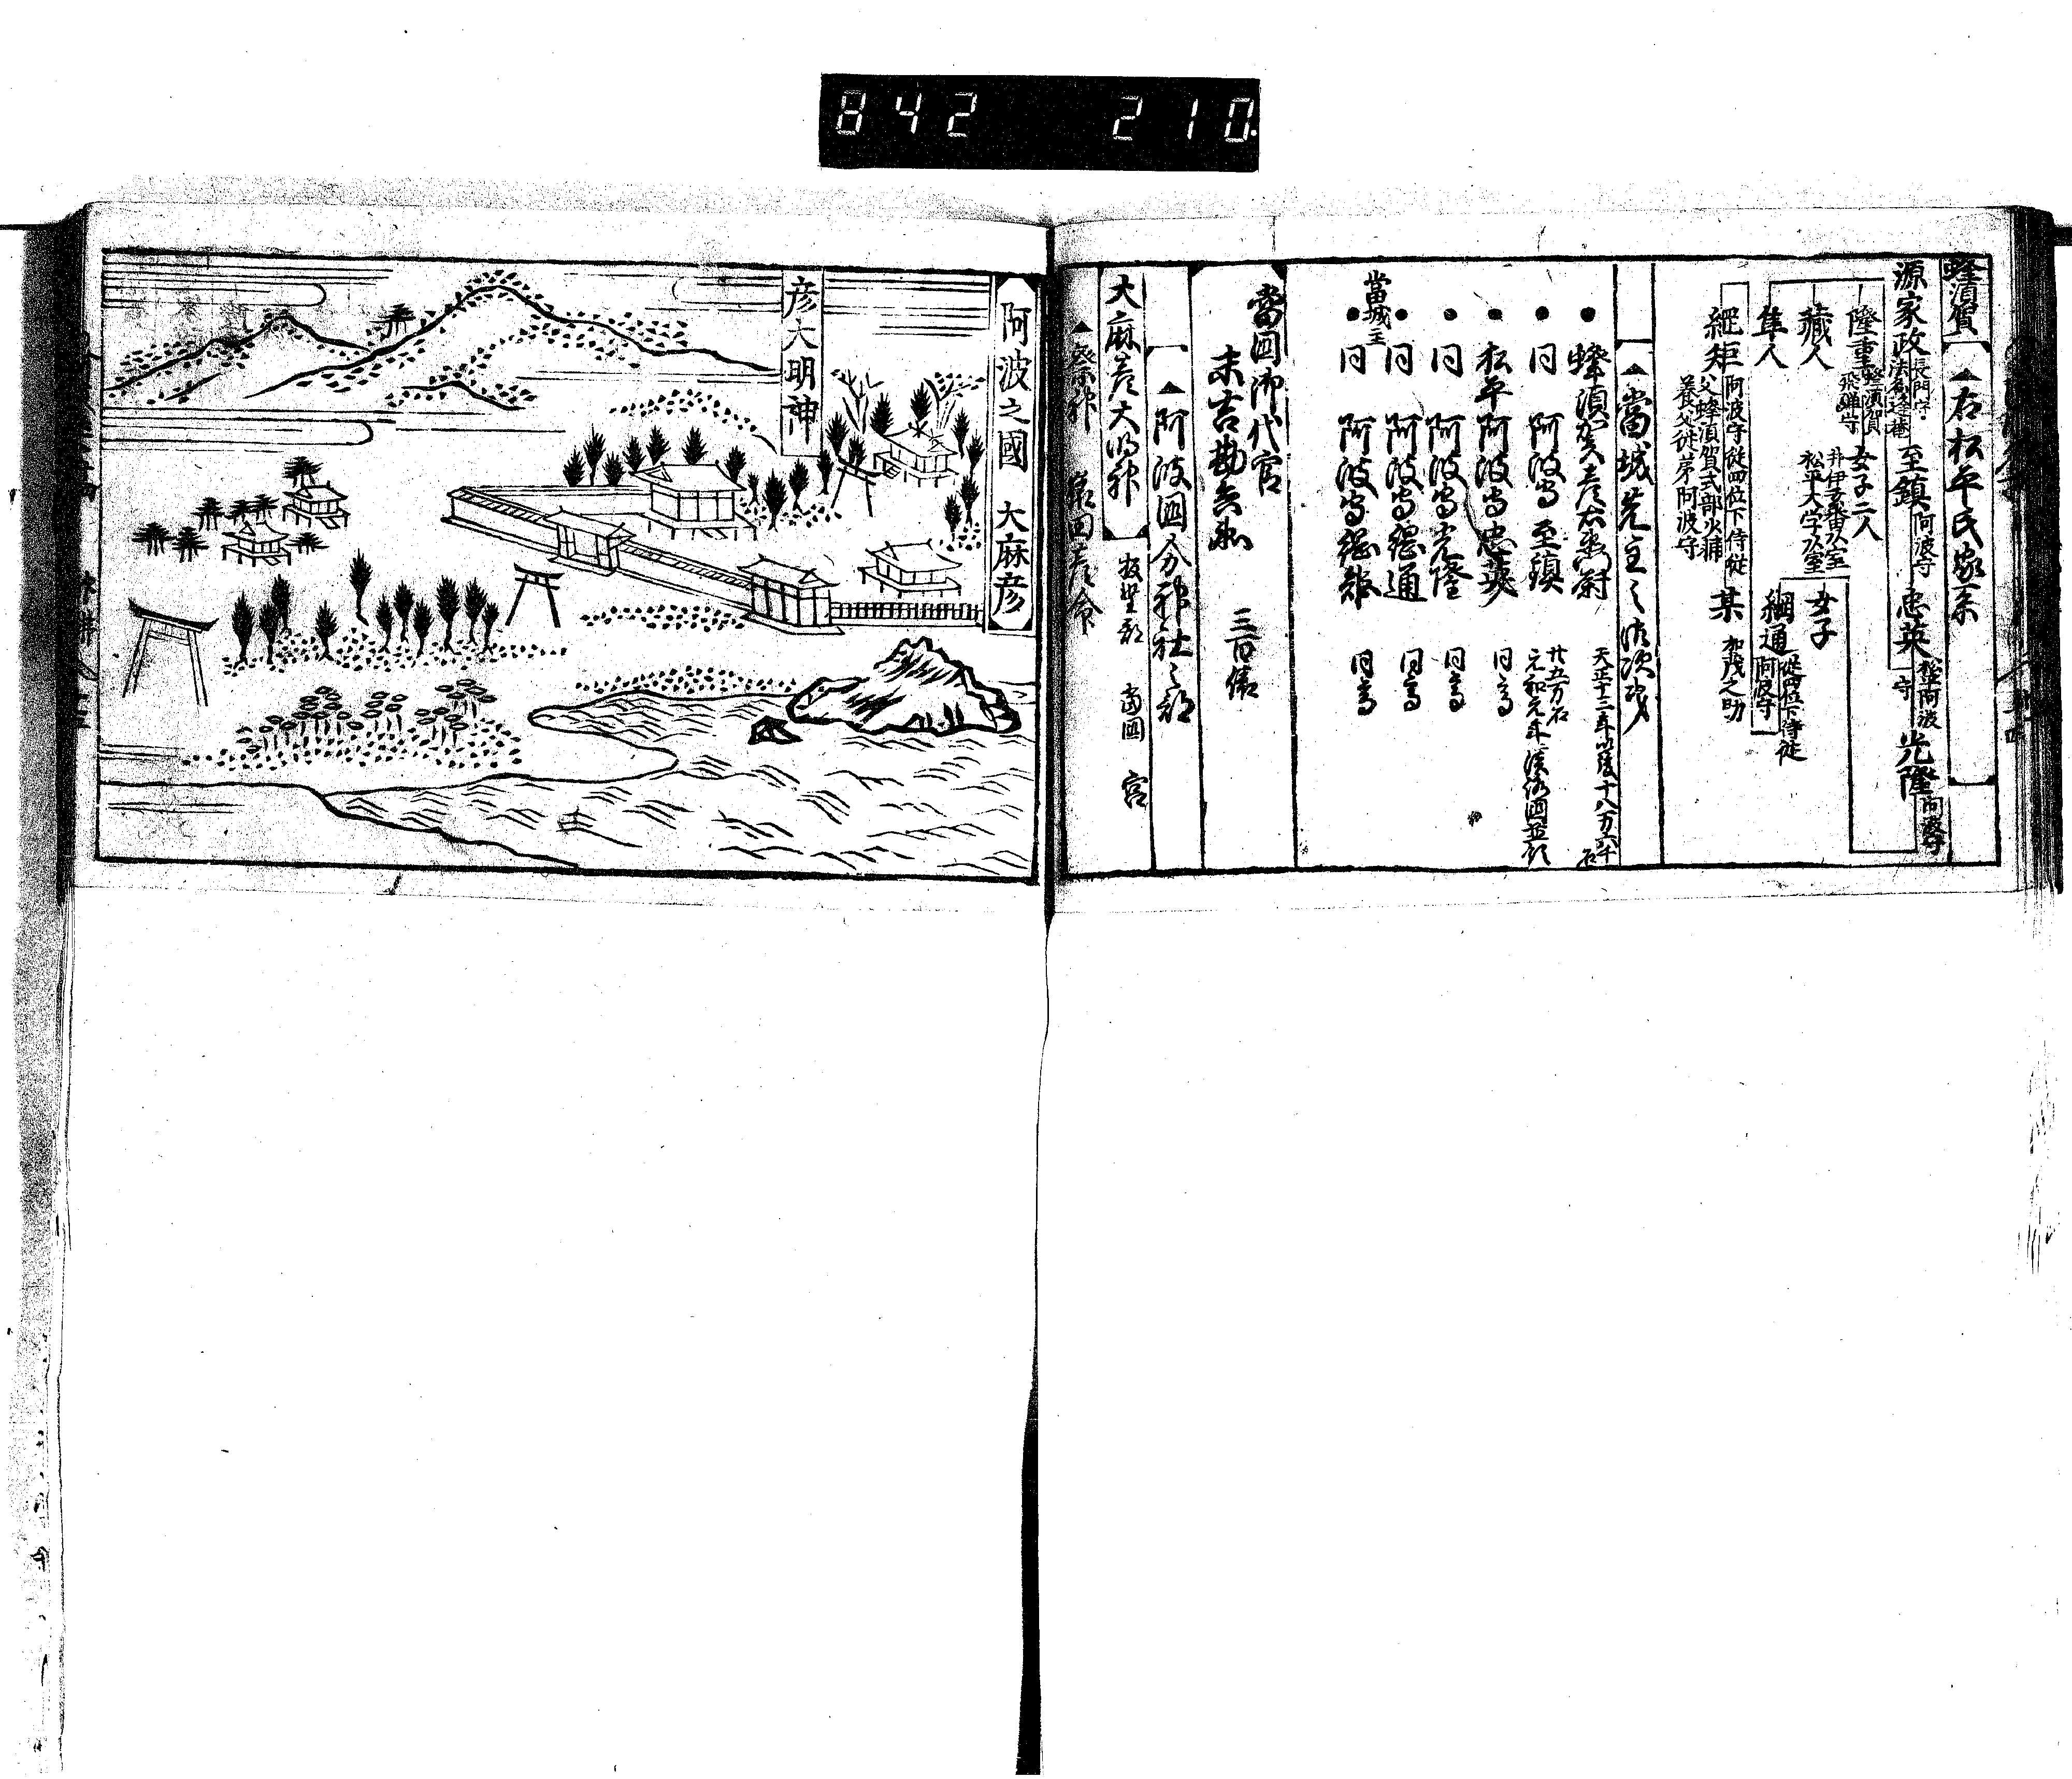 842 210.
蜂須賀
▲右松平氏家系
源家政 長門守 法名蓬菴
至鎮 阿波守
忠英 松平阿波守
光隆 阿波守
隆重 蜂須賀飛騨守
女子二人
井伊玄蕃久室
松平大学久室
藏人
隼人
女子
綱通 從四位下侍從 阿波守
綱矩 阿波守從四位下侍從
父蜂須賀式部少輔
養父従弟阿波守
某
▲當城先主之次第
● 蜂須賀彦右衛門尉 天正十三年以後十八万六千石
● 同 阿波守至鎮 廿五万石
元和元年淡路國並領
● 松平阿波守忠英 同高
● 同 阿波守光隆 同高
● 同 阿波守綱通 同高
當城主
● 同 阿波守綱矩 同高
當国御代官
末吉勘兵衛 三百俵
▲阿波國分神社之部
大麻彦大明神 板野郡 當国一宮
▲祭神 猿田彦命
阿波之國 大麻彦
彦大明神